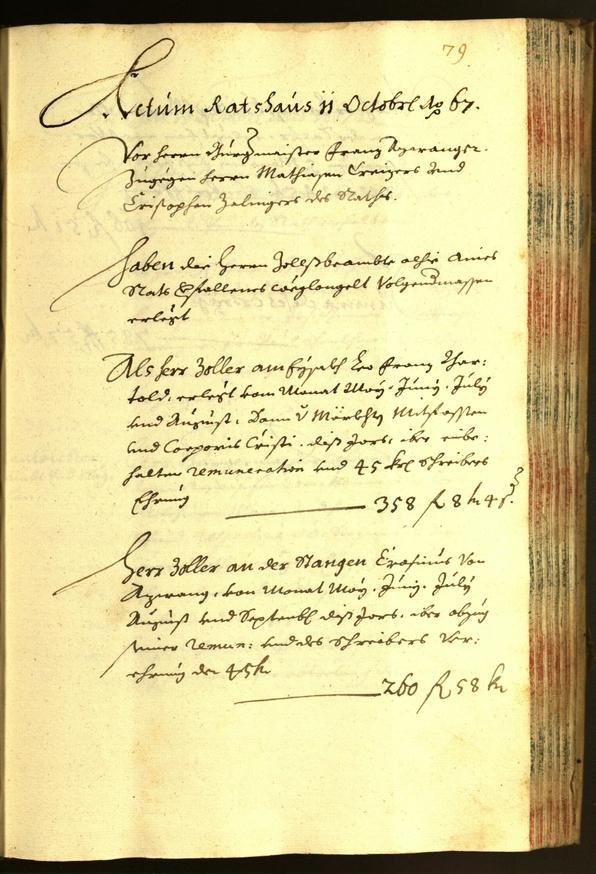 79.
Actum Ratshaus 11 Octobrl Ao 67.
Vor herrn Burgmaister Franz Azwanger.
Zugegen herrn Mathiasen Creizers Und
Cristophen Zalingers des Raths.
Haben die herrn Zollsbeambte alhie Aines
Rats Gefallenes Volgendmassen
erlegt
Als herr Zoller am Leo Franz
told, erlegt vom Monat May, Juny, July
und August, Dann Mitfassten
und Corporis Cristi, diss Jars, über einbe:
haltene remuneration und 45 krl Schreibers
Ehrung
358 fl 8 kr 4
Herr Zoller an der Stangen Erasmus Von
Azwang, von Monat May, Juny, July
August und Septembl diss Jars, über abzug
seiner remun: und des Schreibers Ver:
ehrung der 45 kr
260 fl 58 kr